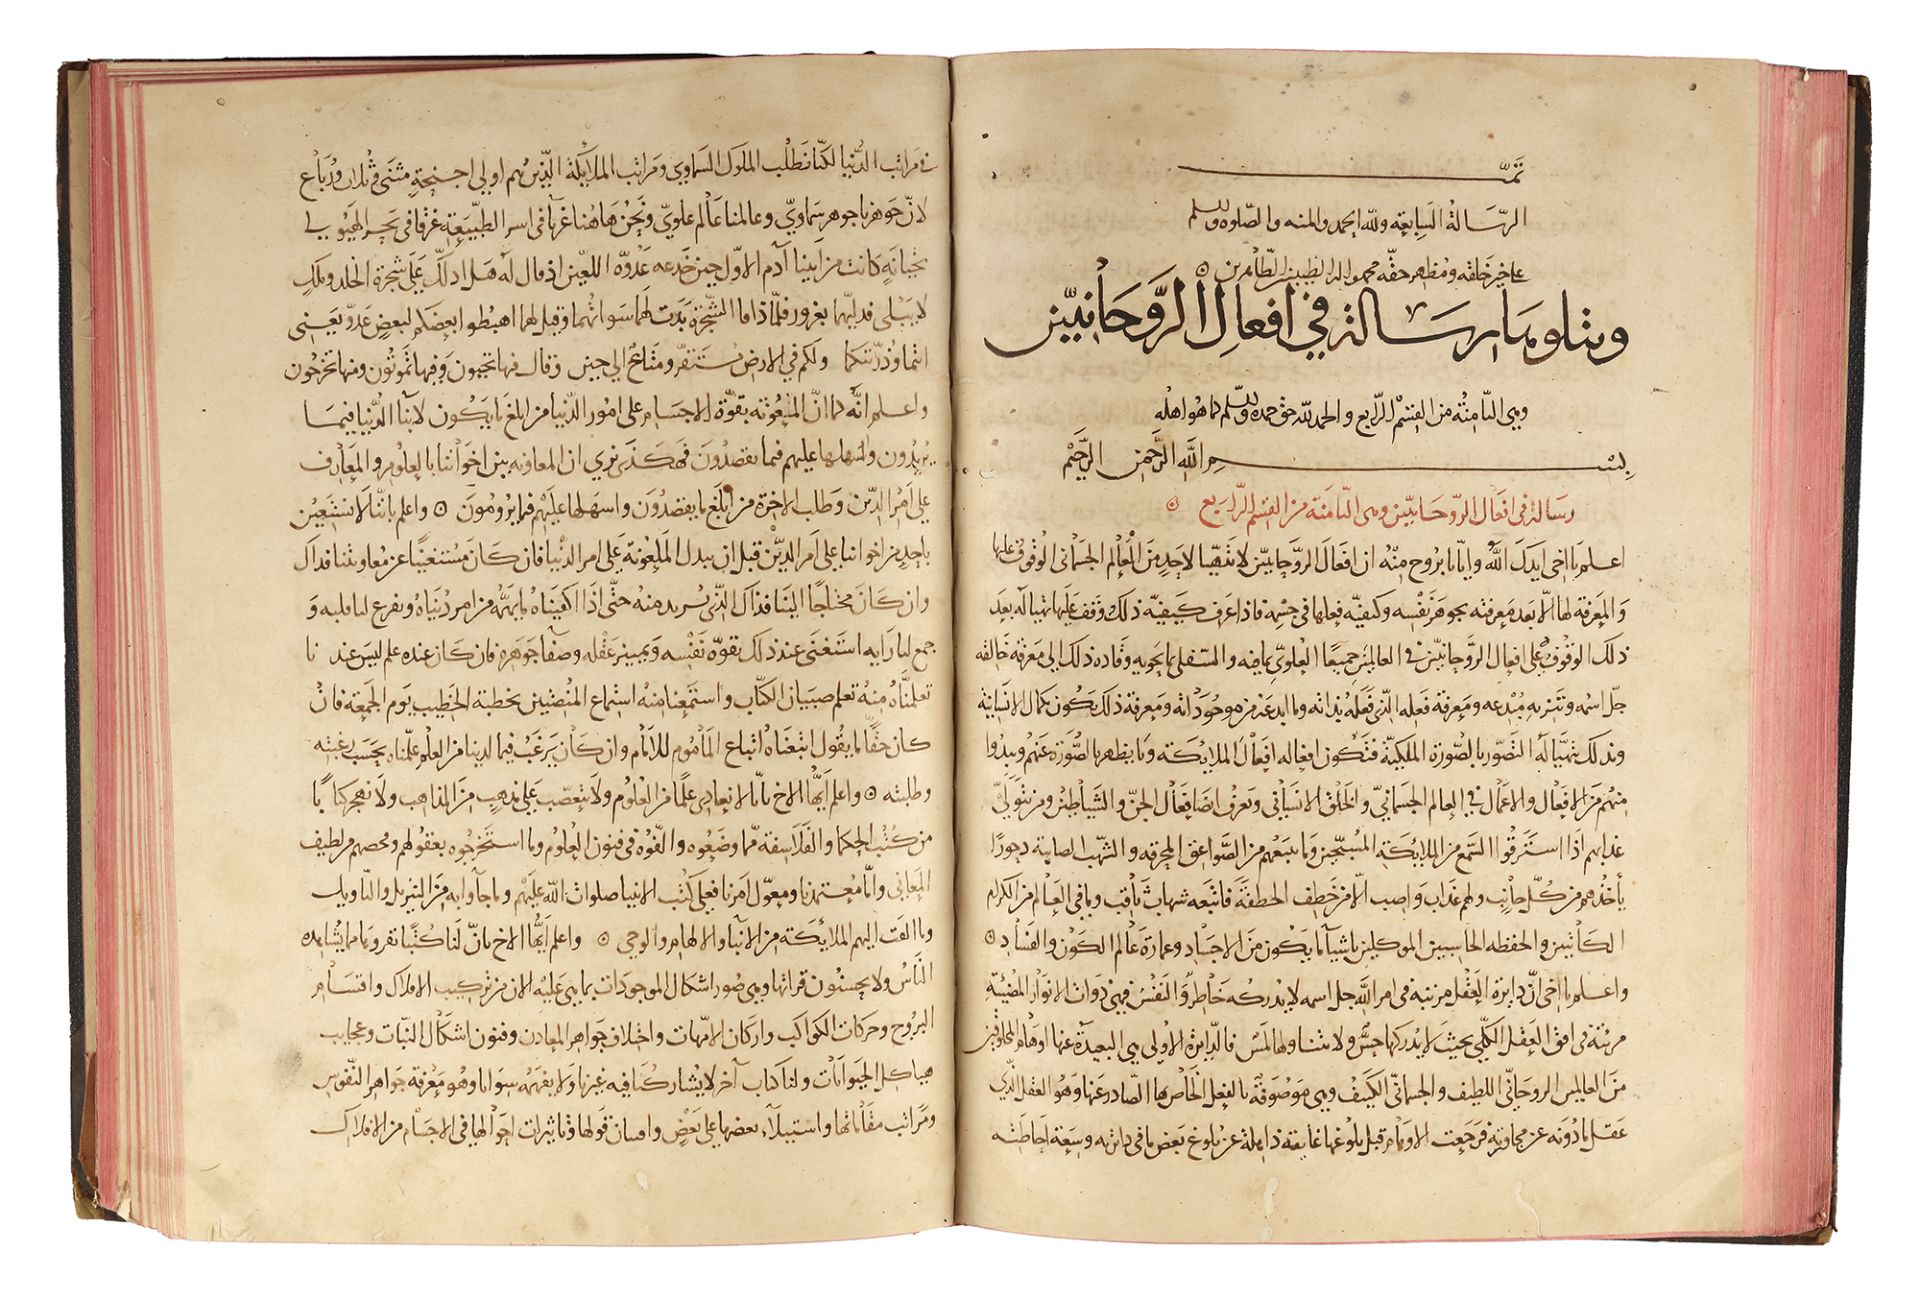 تمت
الرسالة السابعة ولله الحمد والمنه والصلوة والسلم
على خير خلقه ومظهر حقه محمد واله الطيبين الطاهرين
ويتلوها رسالة في افعال الروحانيين
وهي الثامنة من القسم الرابع والحمد لله حق حمده كما هو اهله
بسم الله الرحمن الرحيم
رسالة في افعال الروحانيين وهي الثامنة من القسم الرابع
اعلم يا اخي ايدك الله وايانا بروح منه ان افعال الروحانيين لا تتهيا لاحد من العالم الجسماني الوقوف عليها
والمعرفة لها الا بعد معرفته بجوهر نفسه وكيفية فعلها في جسمه فاذا عرف كيفية ذلك وقف عليها تهيا له بعد
ذلك الوقوف على افعال الروحانيين في العالمين جميعا العلوي بما فيه والسفلي بما يحويه وقاده ذلك الى معرفة خالقه
جل اسمه وتنزيه مبدعه ومعرفة فعله الذي فعله بذاته وما ابدعه من موجوداته ومعرفة ذلك يكون كمال الانسانية
وبذلك يتهيا له التصور بالصورة الملكية فتكون افعاله افعال الملايكة وما يظهر بالصورة عنهم ويبدوا
منهم من الافعال والاعمال في العالم الجسماني والخلق الانساني وتعرف ايضا افعال الجن والشياطين ومن يتولى
عذابهم اذا استرقوا السمع من الملايكة المسبحين وما يتبعهم من الصواعق المحرقه والشهب الصايبة دحورا
يأخذهم من كل جانب ولهم عذاب واصب الا من خطف الخطفة فاتبعه شهاب ثاقب وما في العالم من الكرام
الكاتبين والحفظه الحاسبين الموكلين باشيا ما يكون من الاجساد وعمارة عالم الكون والفساد
واعلم يا اخي ان دايرة العقل مرتبه في امر الله جل اسمه لا يدركه خاطر والنفس فهي ذوات الانوار المضيئة
مرتبة في افق العقل الكلي بحيث لا يدركها حس ولا يتناولها لمس فالدايرة الاولى هي البعيدة عنها اوهام المخلوقين
من العالمين الروحاني اللطيف والجسماني الكثيف وهي موصوفة بالفعل الخاص بها الصادر عنها وهو العقل الذي
عقل ما دونه عن مجاوزته فرجعت الاوهام قبل بلوغها غايته ذاهلة عن بلوغ بعض ما في دائرته وسعة احاطته
في مراتب الدنيا لكنا نطلب الملكوت السماوي ومراتب الملايكة الذين هم اولي اجنحة مثنى وثلاث ورباع
لان جوهرنا جوهر سماوي وعالمنا عالم علوي ونحن هاهنا غربا في اسر الطبيعة غرقا في بحر الهيولي
بجناية كانت من ابينا آدم الاول حين خدعه عدوه اللعين اذ قال له هل ادلك على شجرة الخلد وملك
لا يبلى فدليهما بغرور فلما ذاقا الشجرة بدت لهما سواتهما وقيل لهما اهبطوا بعضكم لبعض عدو يعني
انتما وذريتكما ولكم في الارض مستقر ومتاع الى حين وقال فيها تحيون وفيها تموتون ومنها تخرجون
واعلم انه كما ان المعونة بقوة الاجسام على امور الدنيا من ابلغ ما يكون لابنا الدنيا فيما
يريدون واسهلها عليهم فيما يقصدون فهكذى نرى ان المعاونه بين اخواننا بالعلوم والمعارف
على امر الدين وطلب الاخرة من ابلغ ما يقصدون واسهلها عليهم فيما يرومون واعلم باننا لا نستعين
باحد من اخواننا على امر الدين قبل ان يبدل المعونة على امر الدنيا فان كان مستغنيا عن معاونتنا فذاك
وان كان محتاجا الينا فذاك الذي نريد منه حتى اذا اكفيناه ما يهمه من امر دنياه وتفرغ لنا قلبه و
جمع لنا رايه استغنى عند ذلك بقوة نفسه وتمييز عقله وصفا جوهره فان كان عنده علم ليس عندنا
تعلمناه منه تعلم صبيان الكتاب واستمعنا منه استماع المنصتين بخطبة الخطيب يوم الجمعة فان
كان حقا ما يقول اتبعناه اتباع المأموم للامام وان كان يرغب فيما لدينا من العلم علمناه بحسب رغبته
وطلبته واعلم ايها الاخ بانا لا نعادي علما من العلوم ولا نتعصب على مذهب من المذاهب ولا نهجر كتابا
من كتب الحكما والفلاسفة مما وضعوه والفوه في فنون العلوم وما استخرجوه بعقولهم وتفحصهم من لطيف
المعاني وانما معتمدنا ومعول امرنا فعلى كتب الانبيا صلوات الله عليهم وما جاوا به من التنزيل والتاويل
وما القت اليهم الملائكة من الانبا والالهام والوحي واعلم ايها الاخ بان لنا كتبا نقروها مما يشاهده
الناس ولا يحسنون قراتها وهي صور اشكال الموجودات بما هي عليه الان من تركيب الافلاك واقسام
البروج وحركات الكواكب واركان الامهات واختلاف جواهر المعادن وفنون اشكال النبات وعجايب
هياكل الحيوانات ولنا كتاب آخر لا يشاركنا فيه غيرنا ولا يفهمه سوانا وهو معرفة جواهر النفوس
ومراتب مقاماتها واستيلاء بعضها على بعض وافتنان قواها وتاثيرات احوالها في الاجسام من الافلاك